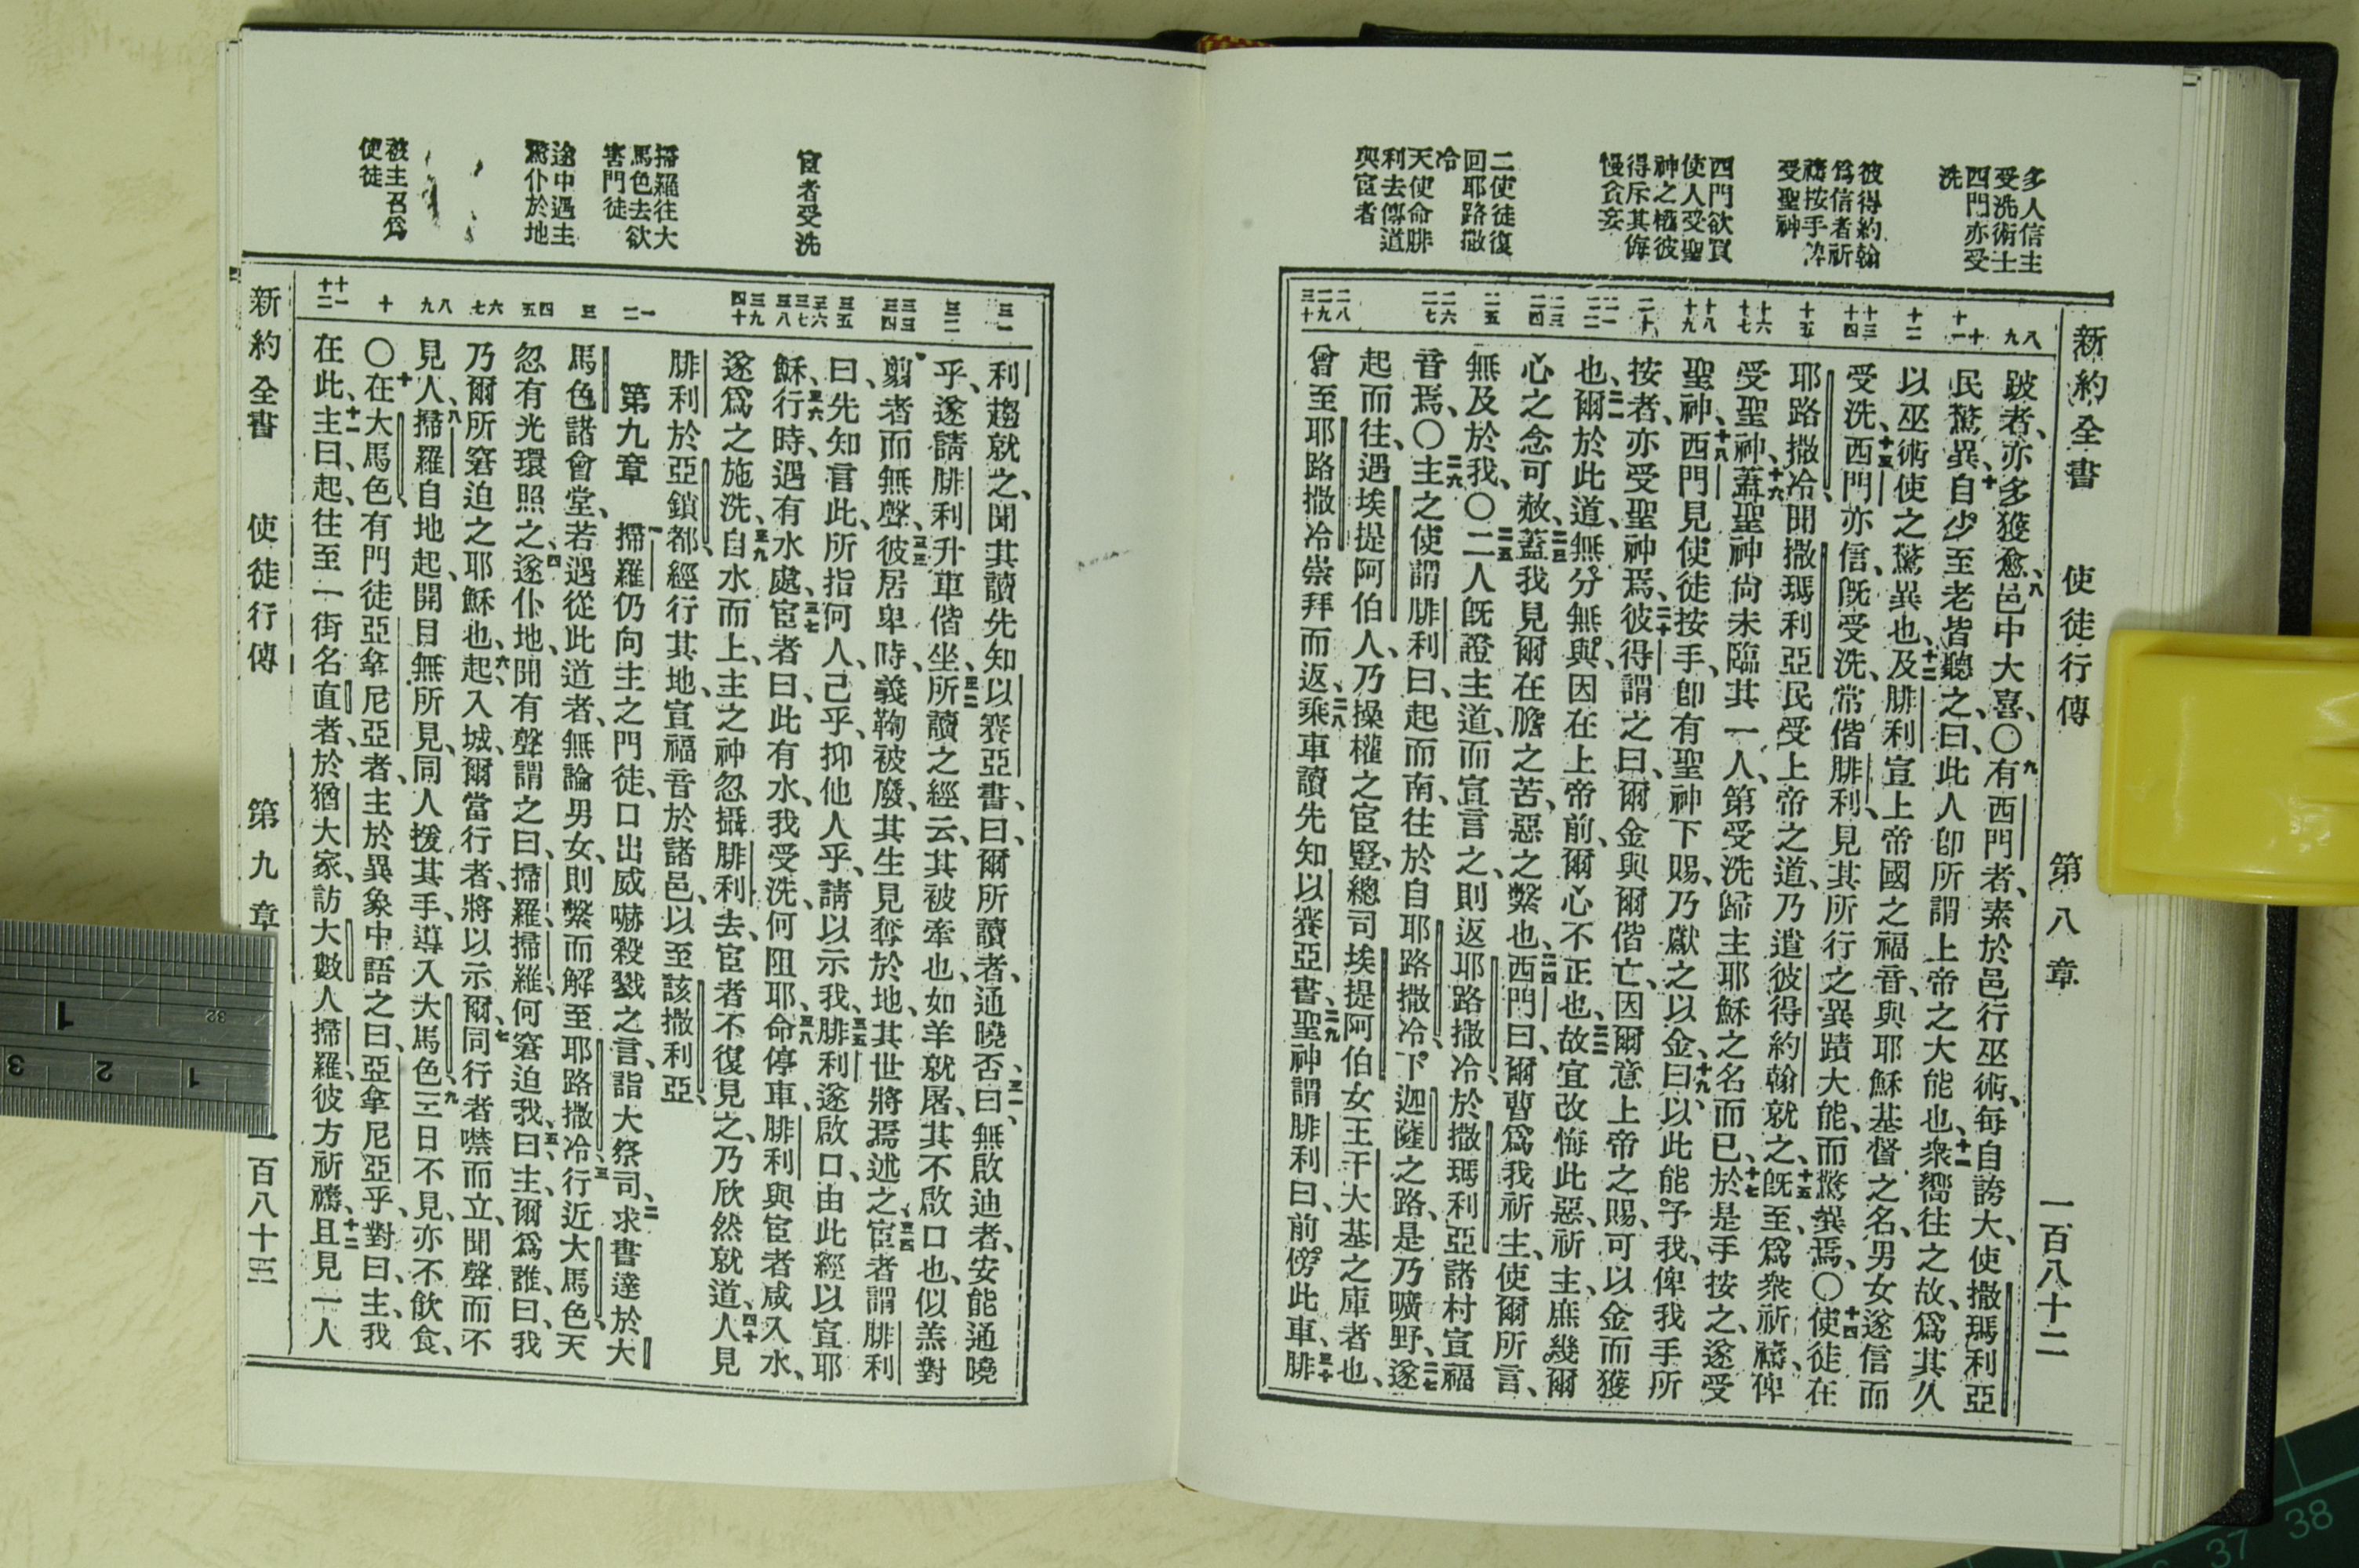 新約全書 使徒行傳 第八章 一百八十二
多人信主
受洗術士
四門亦受
洗
彼得約翰
爲信者祈
禱按手
受聖神
四門欲買
使人受聖
神之權彼
得斥其侮
慢貪妄
二使徒復
回耶路撒
冷
天使命腓
利去傳道
與宦者
八 九
十 十一
十二
十三 十四
十五
十六 十七
十八 十九
二十
二一 二二
二三 二四
二五
二六 二七
二八 二九 三十
跛者、亦多獲愈、八邑中大喜、〇九有西門者、素於邑行巫術、每自誇大、使撒瑪利亞
民驚異、十自少至老皆聽之、曰、此人卽所謂上帝之大能也、十一衆嚮往之、故爲其久
以巫術使之驚異也、十二及腓利宣上帝國之福音、與耶穌基督之名、男女遂信而
受洗、十三西門亦信、旣受洗、常偕腓利、見其所行之異蹟大能、而驚異焉、〇十四使徒在
耶路撒冷、聞撒瑪利亞民受上帝之道、乃遣彼得約翰就之、十五旣至、爲衆祈禱、俾
受聖神、十六蓋聖神尙未臨其一人、第受洗歸主耶穌之名而已、十七於是手按之、遂受
聖神、十八西門見使徒按手、卽有聖神下賜、乃獻之以金、十九曰、以此能予我、俾我手所
按者、亦受聖神焉、二十彼得謂之曰、爾金與爾偕亡、因爾意上帝之賜、可以金而獲
也、二一爾於此道、無分無與、因在上帝前、爾心不正也、二二故宜改悔此惡、祈主、庶幾爾
心之念可赦、二三蓋我見爾在膽之苦、惡之繫也、二四西門曰、爾曹爲我祈主、使爾所言、
無及於我、〇二五二人旣證主道、而宣言之、則返耶路撒冷、於撒瑪利亞諸村宣福
音焉、〇二六主之使謂腓利曰、起而南、往於自耶路撒冷、下迦薩之路、是乃曠野、二七遂
起而往、遇埃提阿伯人、乃操權之宦豎、總司埃提阿伯女王干大基之庫者也、
曾至耶路撒冷崇拜而返、二八乘車讀先知以賽亞書、二九聖神謂腓利曰、前傍此車、三十腓
宦者受洗
掃羅往大
馬色去欲
害門徒
途中遇主
驚仆於地
被主召爲
使徒
三一
三二
三三 三四
三五
三六 三七 三八
三九 四十
一 二
三
四 五
六 七
八 九
十
十一 十二
利趨就之、聞其讀先知以賽亞書、曰、爾所讀者、通曉否、三一曰、無啟迪者、安能通曉
乎、遂請腓利升車偕坐、三二所讀之經云、其被牽也、如羊就屠、其不啟口也、似羔對
剪者而無聲、三三彼居卑時、義鞫被廢、其生見奪於地、其世將焉述之、三四宦者謂腓利
曰、先知言此、所指何人、己乎、抑他人乎、請以示我、三五腓利遂啟口、由此經以宣耶
穌、三六行時、遇有水處、三七宦者曰、此有水、我受洗、何阻耶、三八命停車、腓利與宦者咸入水、
遂爲之施洗、三九自水而上、主之神忽攝腓利去、宦者不復見之、乃欣然就道、四十人見
腓利於亞鎖都、經行其地、宣福音於諸邑、以至該撒利亞、
第九章 一掃羅仍向主之門徒、口出威嚇殺戮之言、詣大祭司、二求書達於大
馬色諸會堂、若遇從此道者、無論男女、則繫而解至耶路撒冷、三行近大馬色、天
忽有光環照之、四遂仆地、聞有聲謂之曰、掃羅、掃羅、何窘迫我、五曰、主、爾爲誰、曰、我
乃爾所窘迫之耶穌也、六起、入城、爾當行者、將以示爾、七同行者噤而立、聞聲而不
見人、八掃羅自地起、開目無所見、同人援其手、導入大馬色、九三日不見、亦不飲食、
〇十在大馬色有門徒亞拿尼亞者、主於異象中語之曰、亞拿尼亞乎、對曰、主、我
在此、十一主曰、起、往至一街名直者、於猶大家、訪大數人掃羅、彼方祈禱、十二且見一人
新約全書 使徒行傳 第九章 一百八十三
1
32
3 2 1
37 38